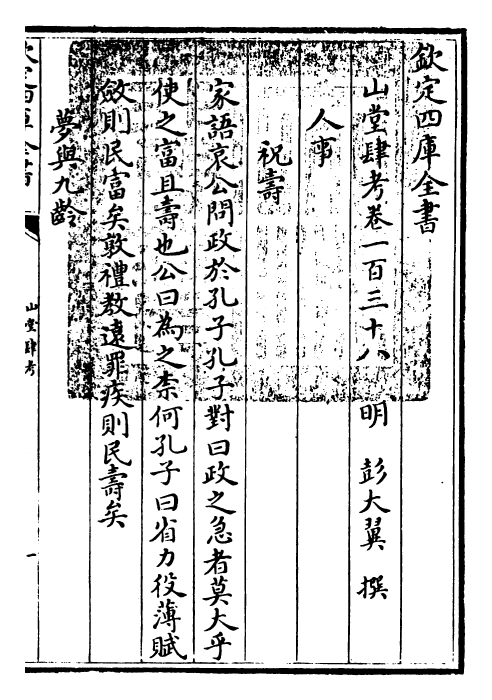 欽定四庫全書
山堂肆考卷一百三十八　明　彭大翼　撰
人事
祝壽
家語哀公問政於孔子孔子對曰政之急者莫大乎
使之富且壽也公曰為之柰何孔子曰省力役薄賦
斂則民富矣敦禮教遠罪疾則民壽矣
夢與九齡
山堂肆考
一